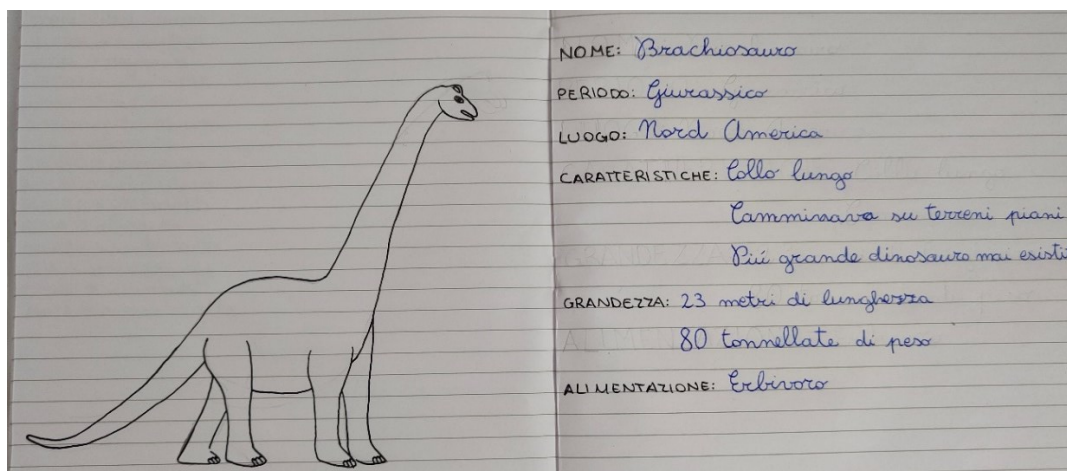 NOME: Brachiosauro
PERIODO: Giurassico
LUOGO: Nord America
CARATTERISTICHE: Collo lungo
Camminava su terreni piani
Più grande dinosauro mai esisti
GRANDEZZA: 23 metri di lunghezza
80 tonnellate di peso
ALIMENTAZIONE: Erbivoro